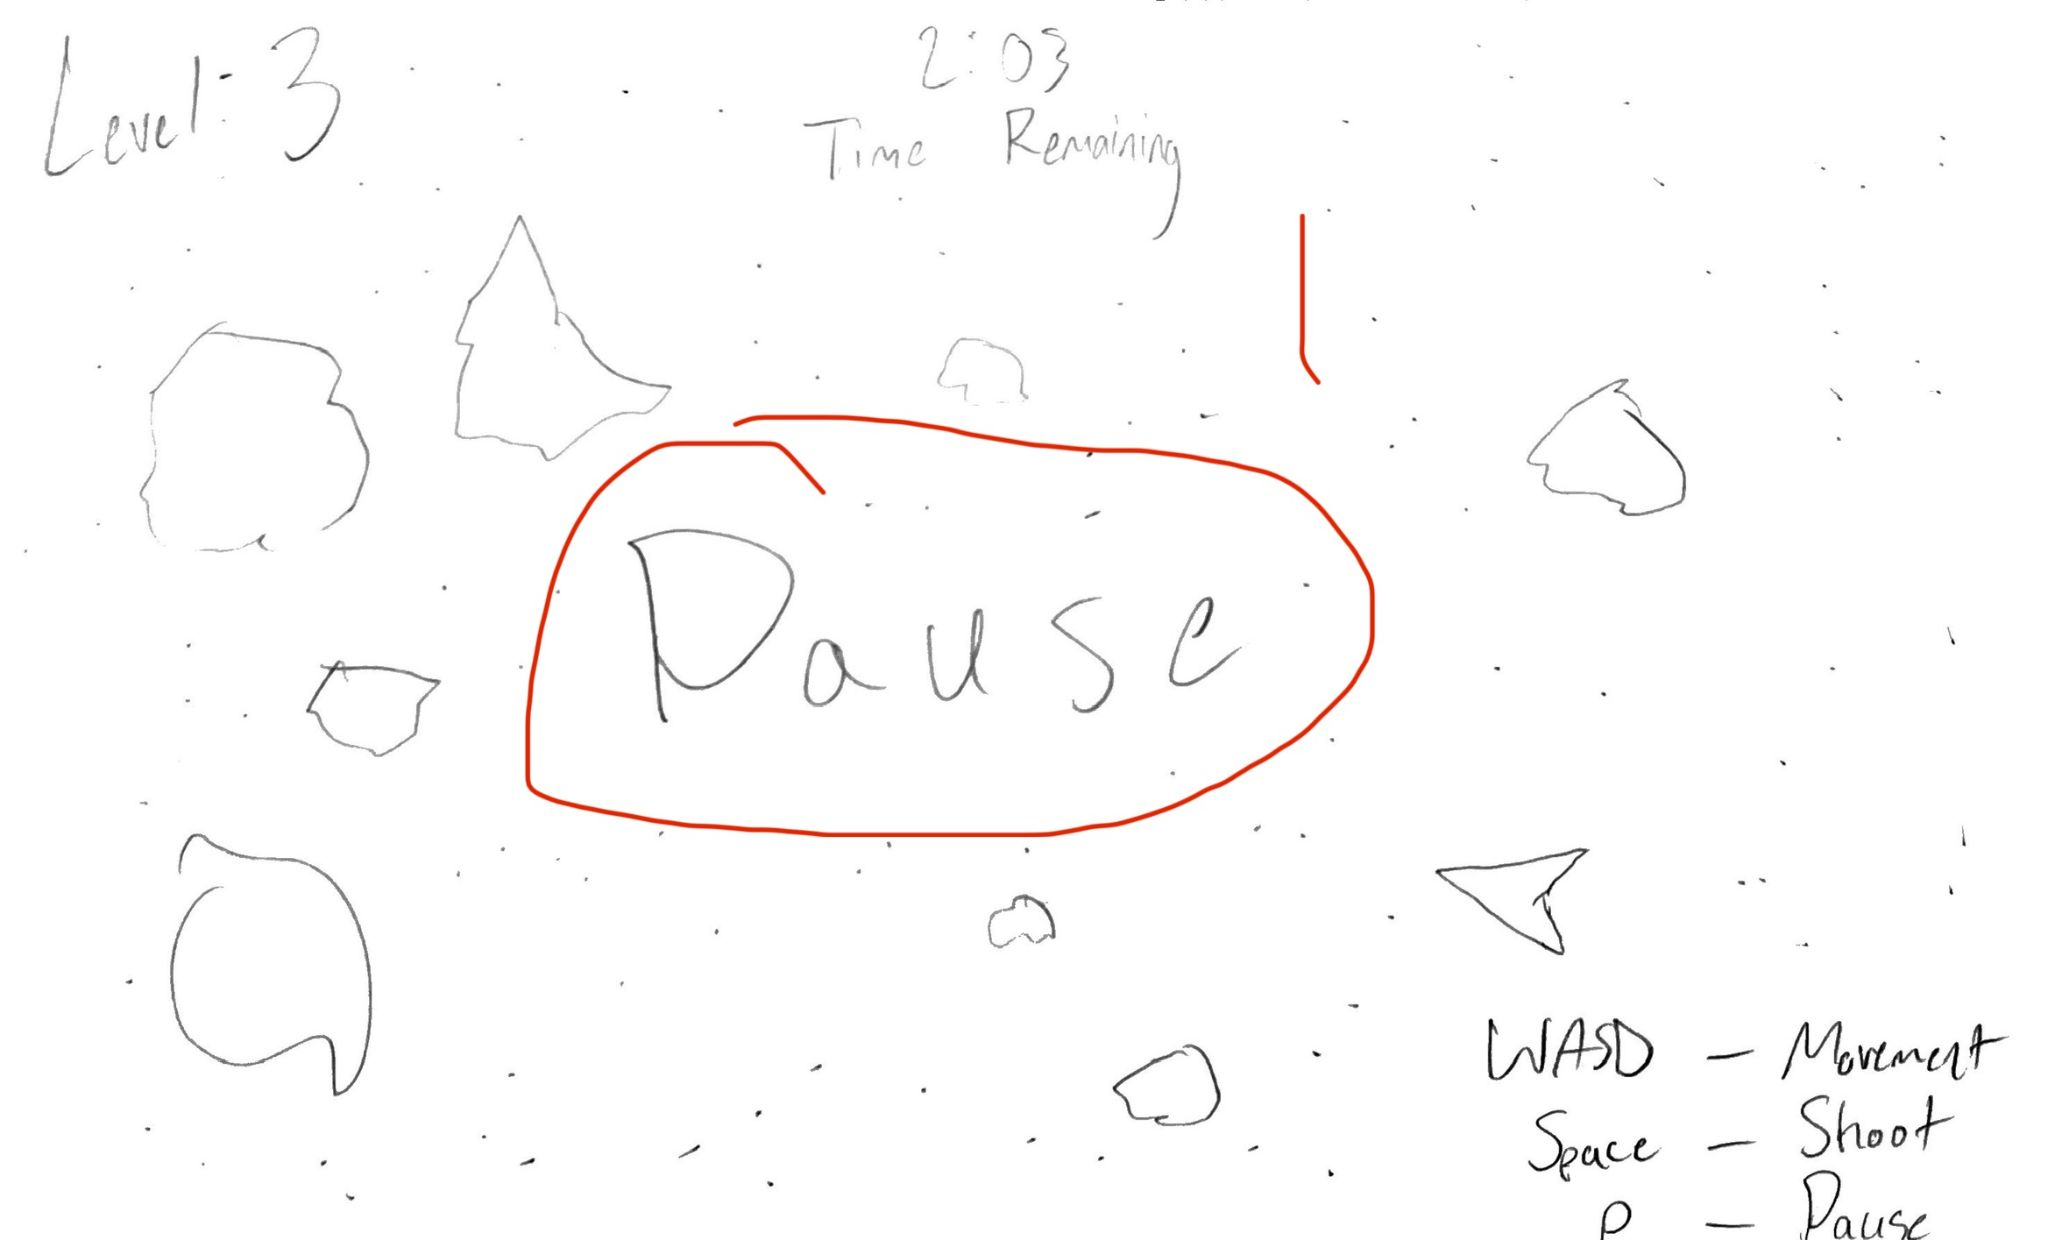 Level: 3
2:03
Time Remaining
Pause
WASD - Movement
Space - Shoot
P - Pause